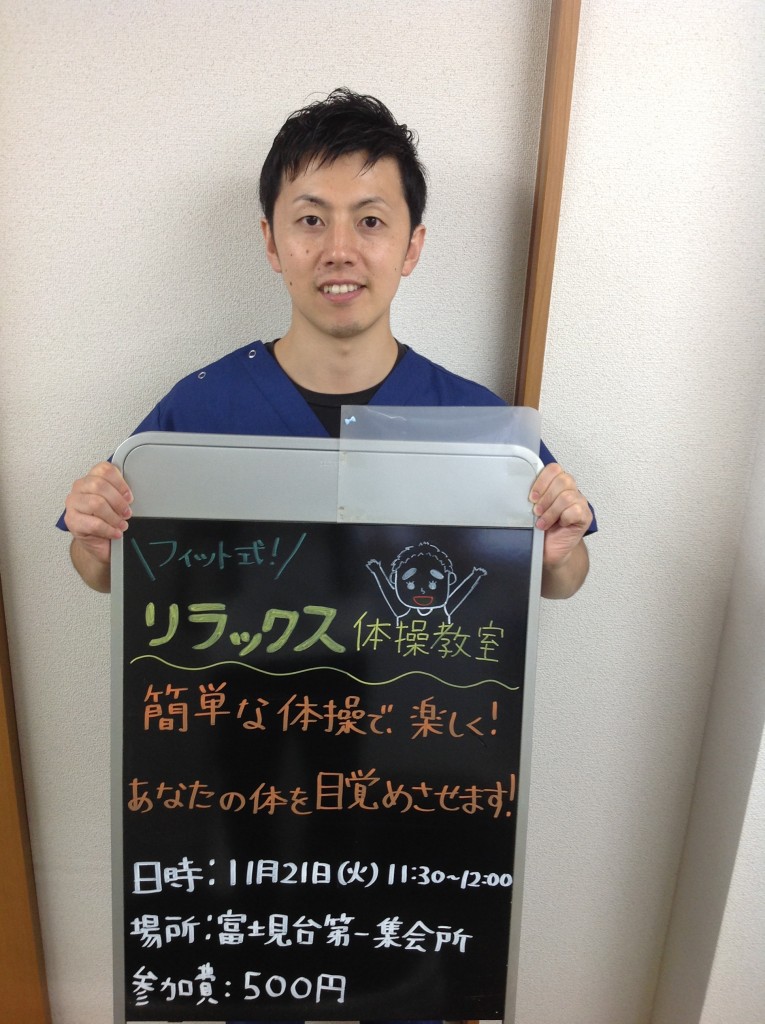 \フィット式!/
リラックス体操教室
簡単な体操で、楽しく!
あなたの体を目覚めさせます!
日時:11月21日(火)11:30~12:00
場所:富士見台第一集会所
参加費:500円